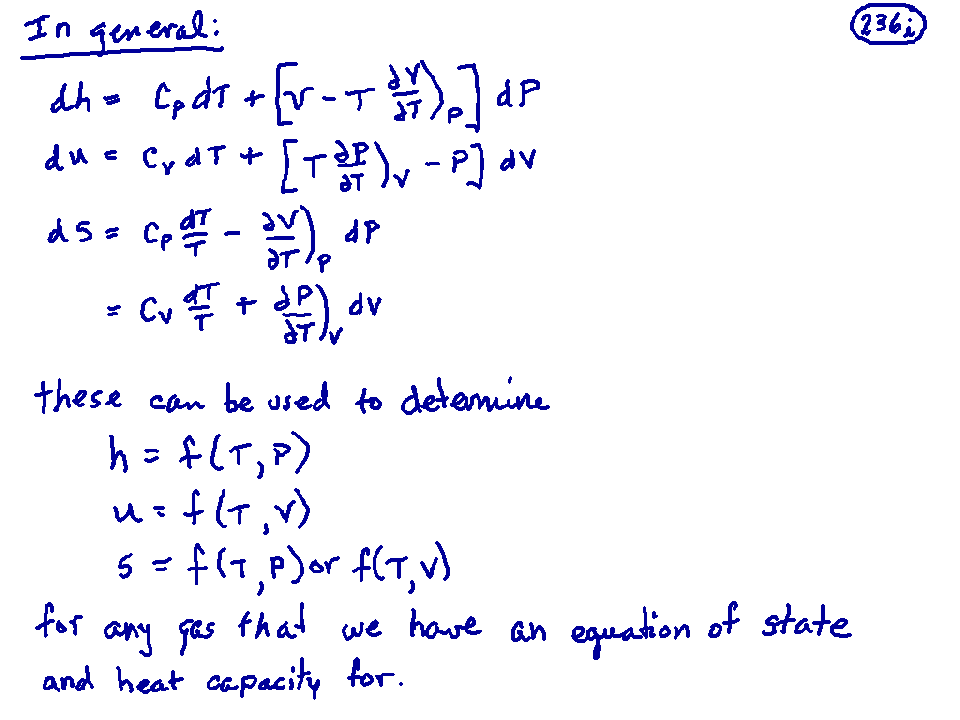 In general:
236i
dh = Cp dT + [v - T ∂v/∂T)P] dP
du = Cv dT + [T ∂P/∂T)v - P] dv
ds = Cp dT/T - ∂v/∂T)P dP
= Cv dT/T + ∂P/∂T)v dv
these can be used to determine
h = f(T, P)
u = f(T, v)
s = f(T, P) or f(T, v)
for any gas that we have an equation of state
and heat capacity for.